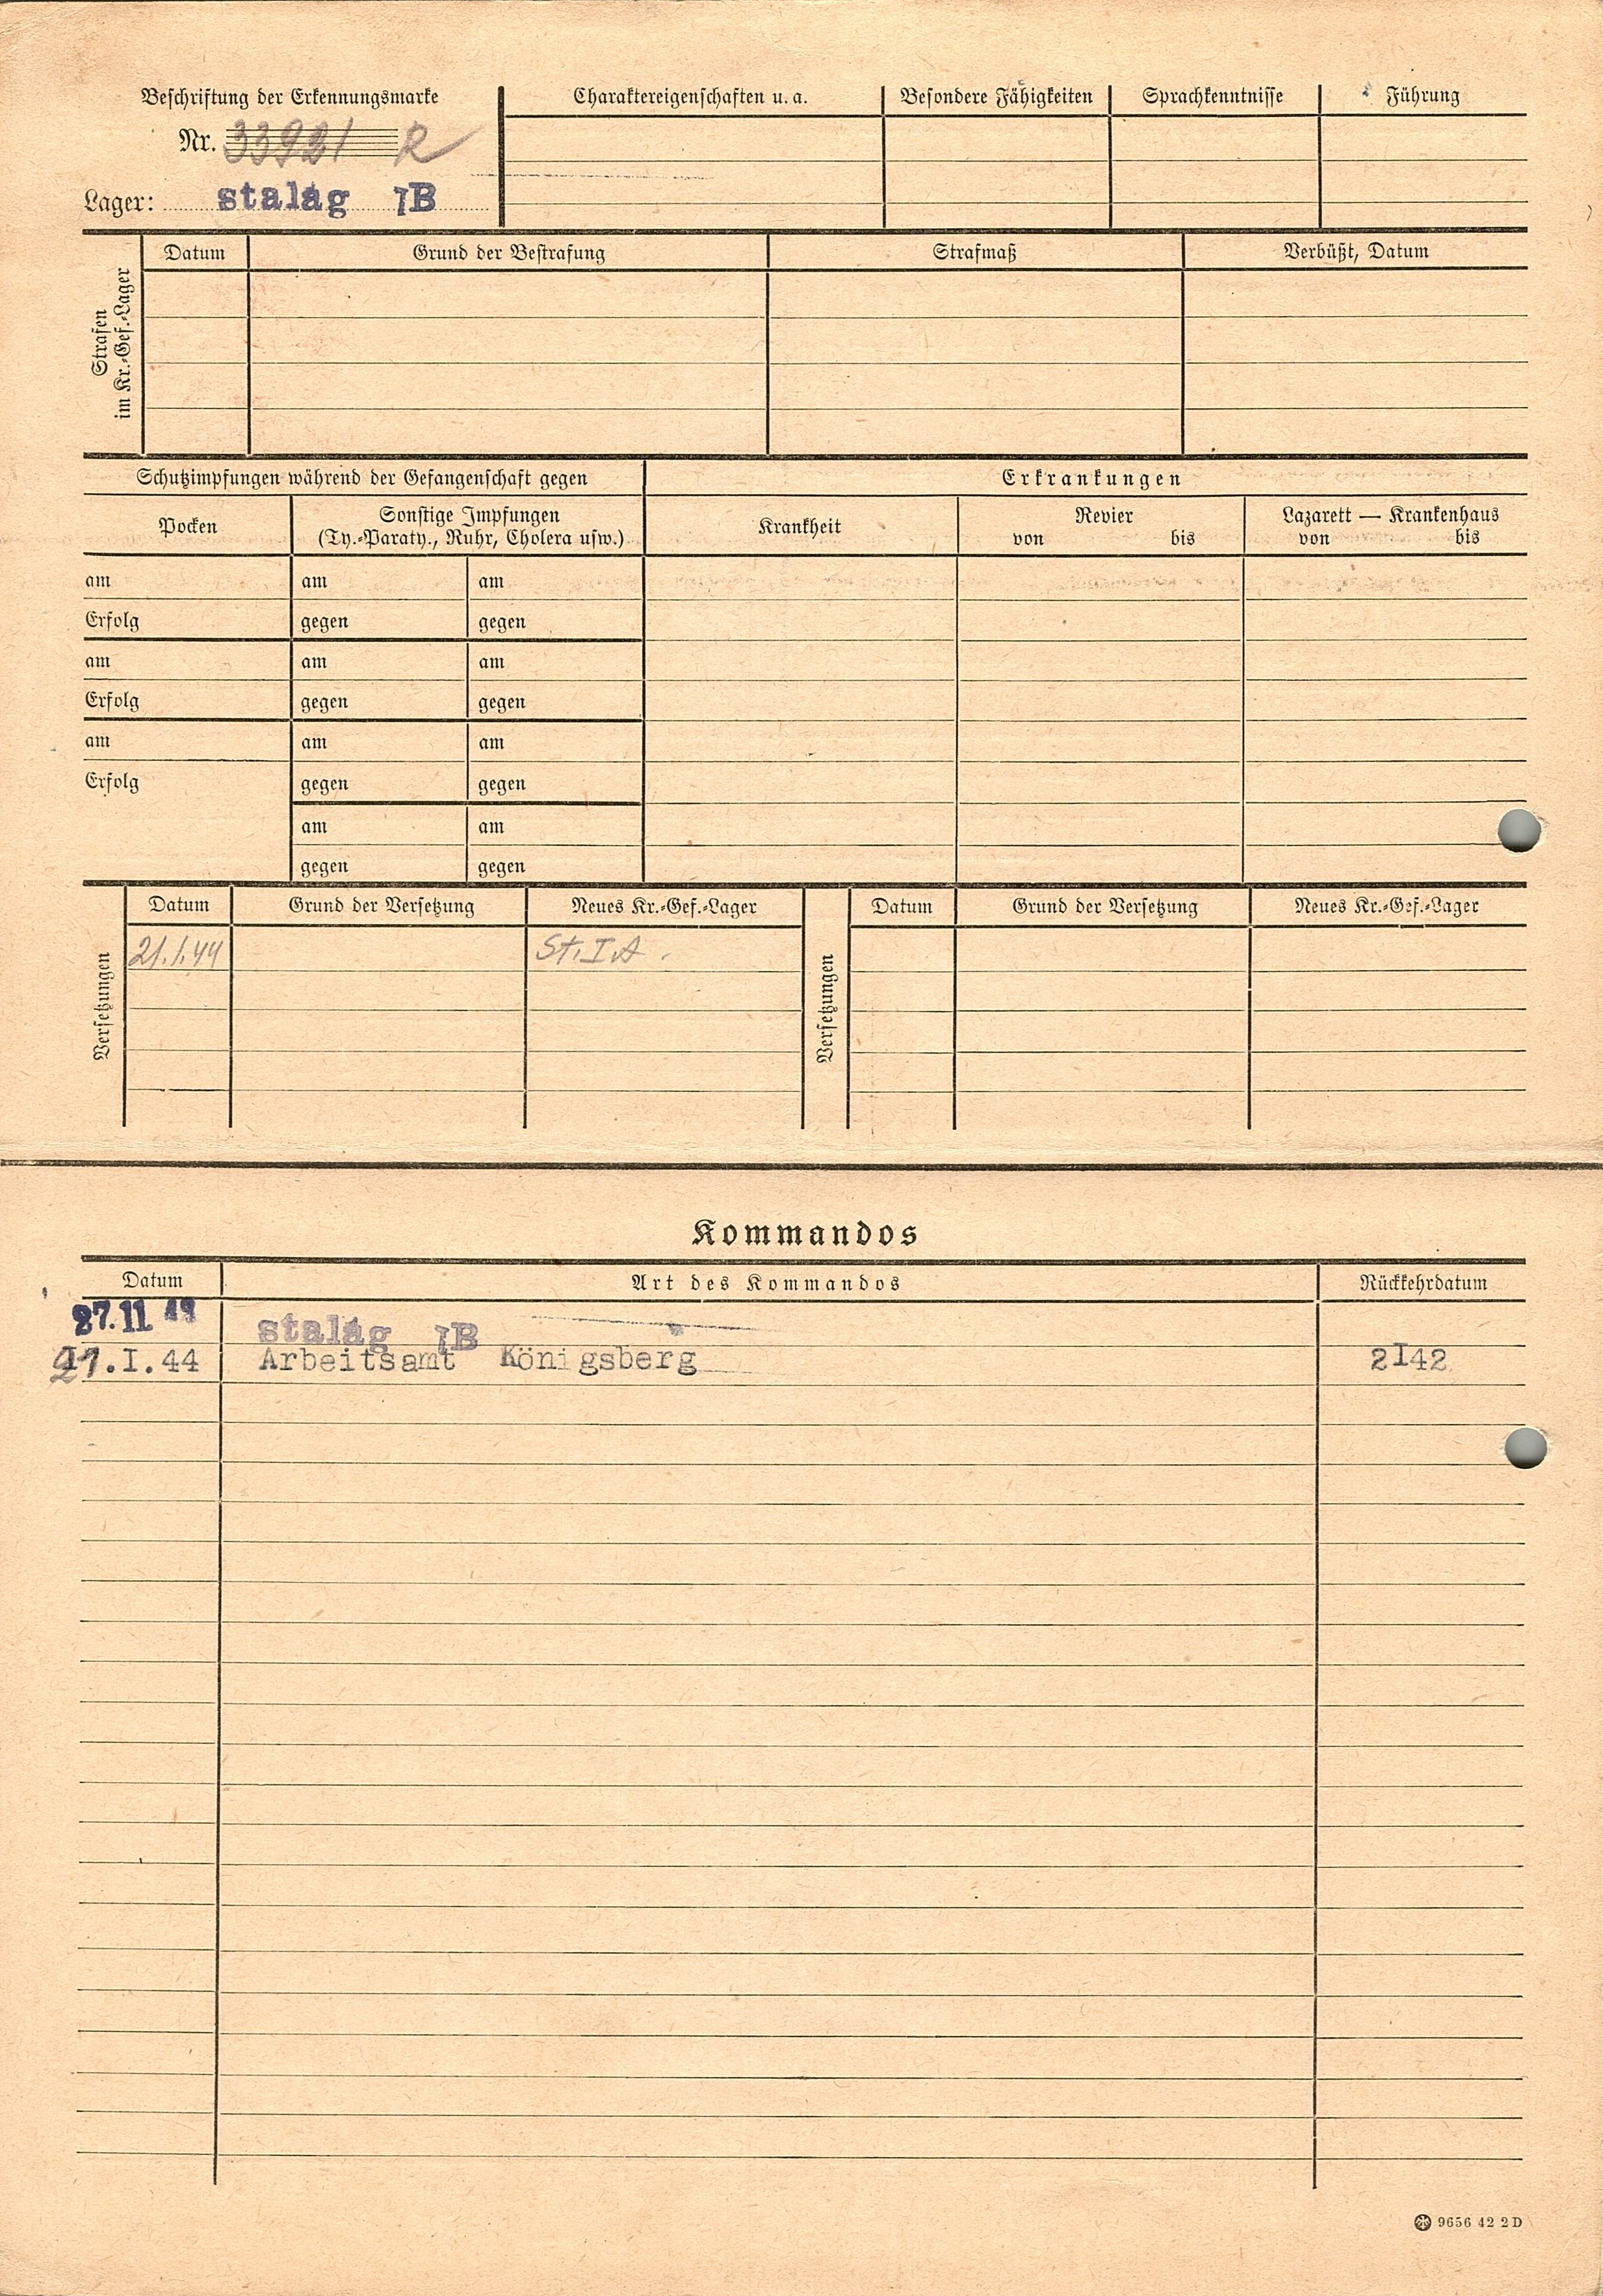 Beschriftung der Erkennungsmarke
Nr. 33921 R
Lager: stalag IB
Charaktereigenschaften u. a.
Besondere Fähigkeiten
Sprachkenntnisse
Führung
Strafen
im Kr.-Gef.-Lager
Datum
Grund der Bestrafung
Strafmaß
Verbüßt, Datum
Schutzimpfungen während der Gefangenschaft gegen
Erkrankungen
Pocken
Sonstige Impfungen
(Ty.-Paraty., Ruhr, Cholera usw.)
Krankheit
Revier
von bis
Lazarett — Krankenhaus
von bis
am am am
Erfolg gegen gegen
am am am
Erfolg gegen gegen
am am am
Erfolg gegen gegen
am am
gegen gegen
Versetzungen
Datum Grund der Versetzung Neues Kr.-Gef.-Lager
21.1.44 St. I A.
Versetzungen
Datum Grund der Versetzung Neues Kr.-Gef.-Lager
Kommandos
Datum Art des Kommandos Rückkehrdatum
27.11 stalag IB
21.I.44 Arbeitsamt Königsberg 2I42
9656 42 2 D